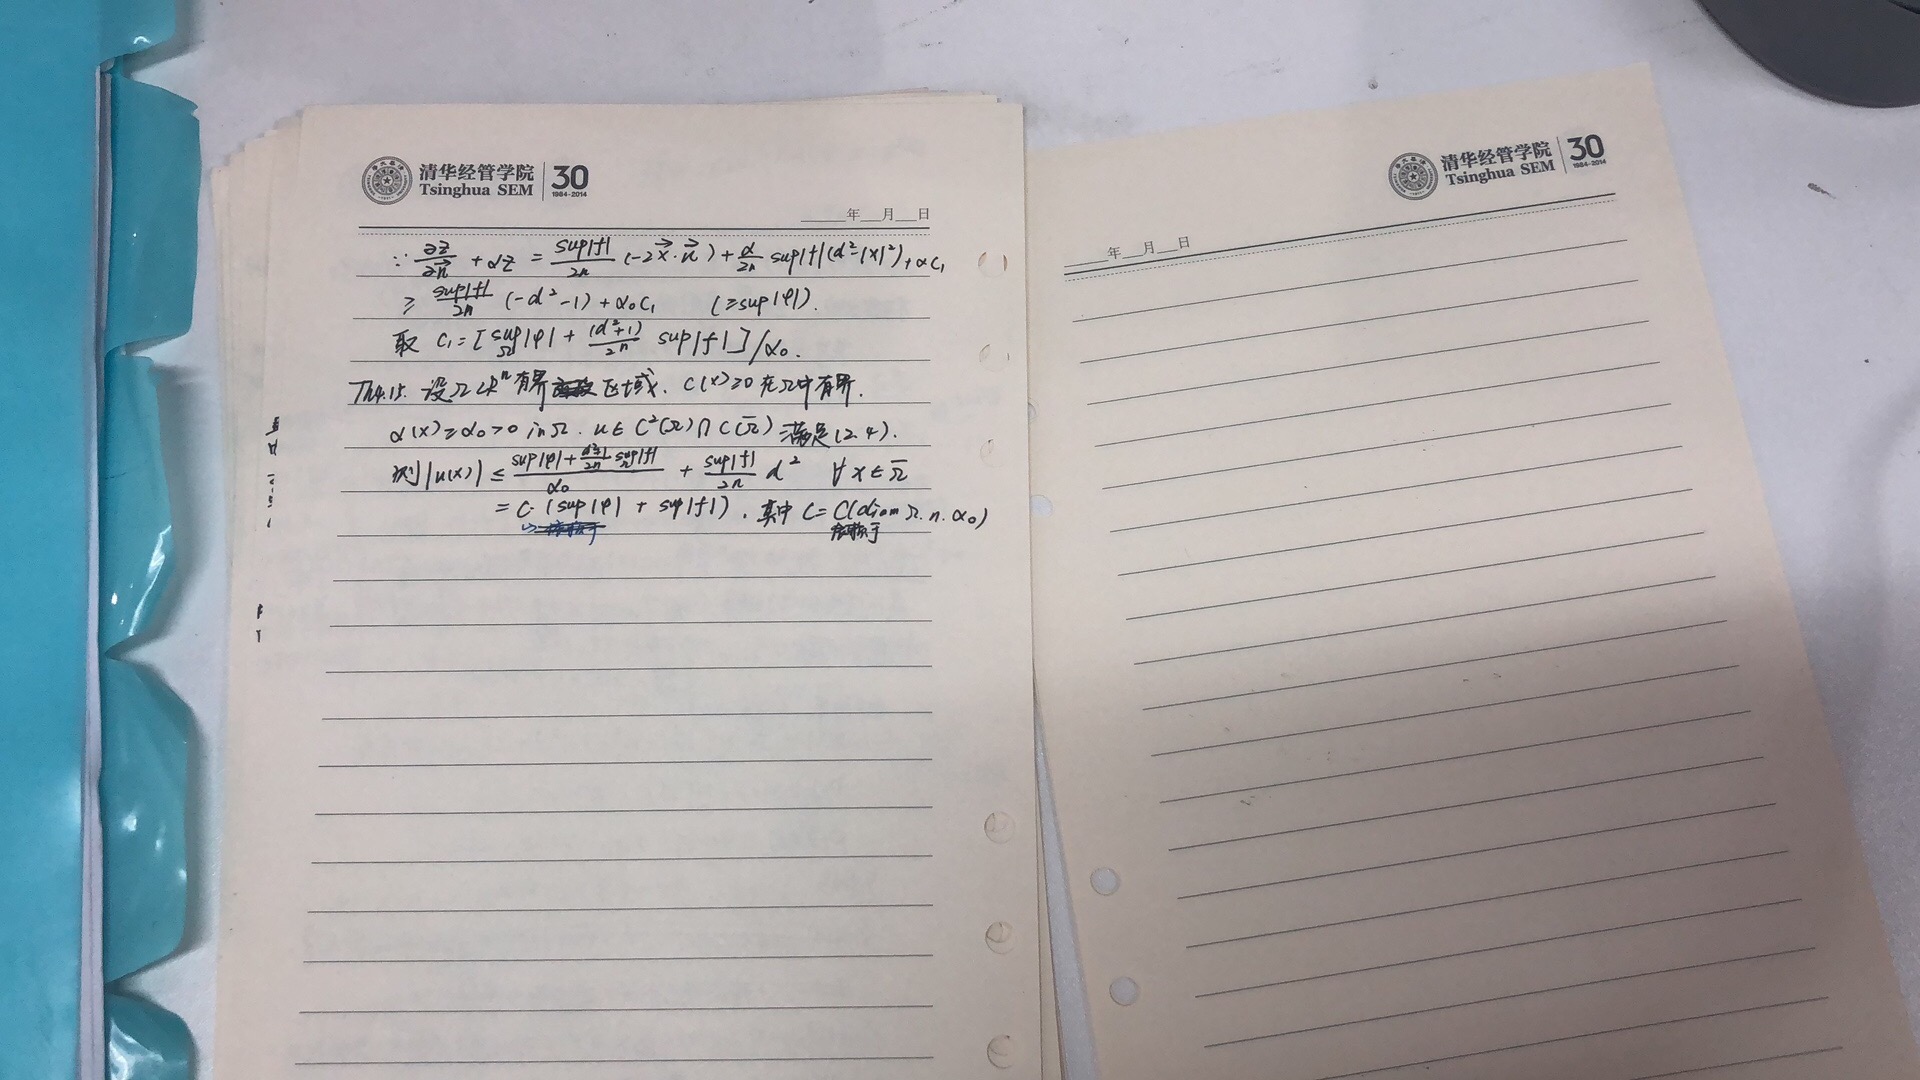 清华经管学院 30
Tsinghua SEM 1984-2014
年 月 日
∵ ∂z/∂n⃗ + αz = sup|f|/2n (-2x⃗·n⃗) + α/2n sup|f|(d²-|x|²) + αC₁
≥ sup|f|/2n (-d²-1) + α₀C₁ (≥sup|φ|).
取 C₁ = [sup_Ω|φ| + (d²+1)/2n sup|f|]/α₀.
Th4.15. 设Ω是Rⁿ有界区域. C(x)≥0 在Ω中有界.
α(x)≥α₀>0 in Ω. u∈C²(Ω)∩C(Ω̄) 满足(2.4).
则|u(x)| ≤ (sup|φ| + (d²+1)/2n sup_Ω|f|)/α₀ + sup|f|/2n d² ∀x∈Ω̄
= C·(sup|φ| + sup|f|). 其中 C = C(diam Ω. n. α₀)
清华经管学院 30
Tsinghua SEM 1984-2014
年 月 日